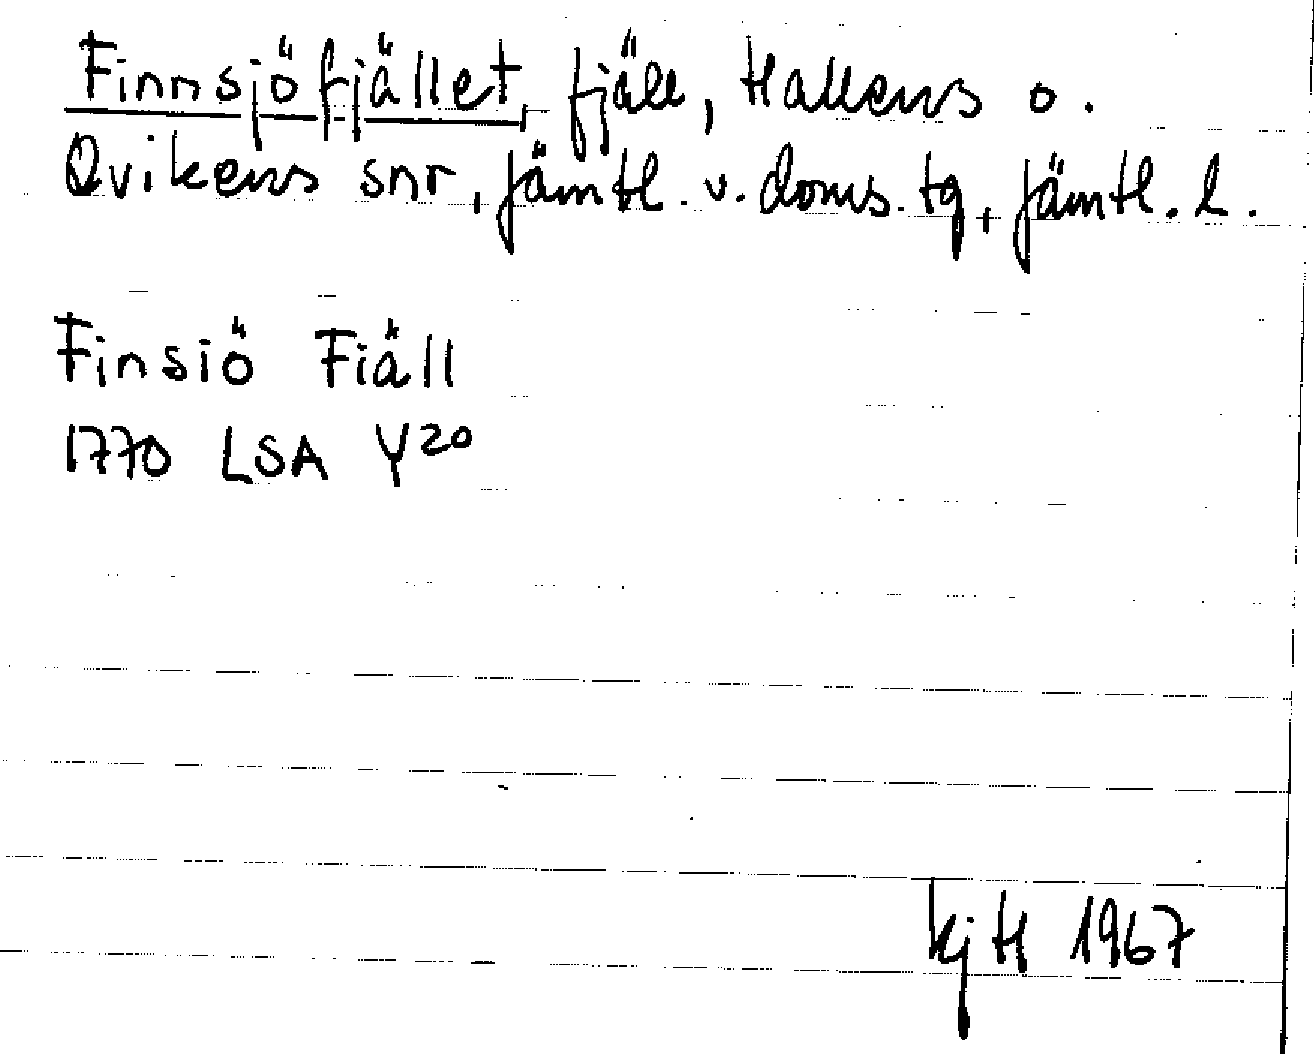 Finnsjöfjället, fjäll, Hallens o.
Qvikens snr, Jämtl. v. doms. tg, Jämtl. l.
Finsiö Fiäll
1770 LSA Y20
KjH 1967